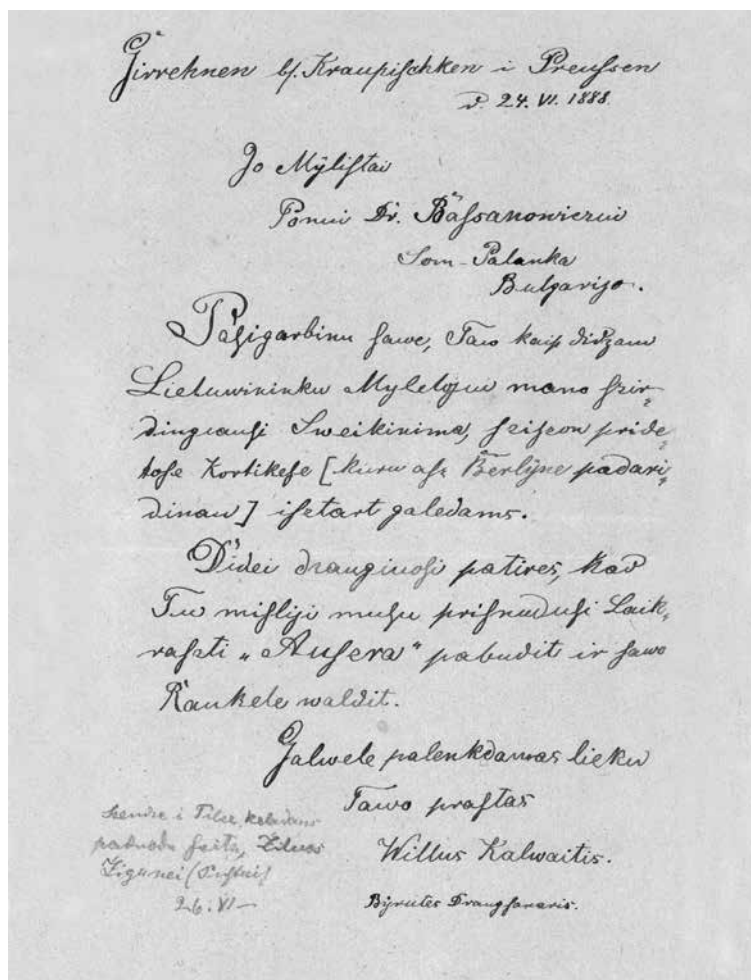 Girrehnen b/. Kraupischken i Preussen
d. 24. VI. 1888.
Jo Mÿlistai
Ponui Dr. Bassanowiczui
Lom-Palanka
Bulgarijo.
Pasigarbinu sawe, Taw kaip didzam
Lietuwininku Myletojui mano szir-
dingiausi Sweikinima, sziseon pride-
tose Kortikese [kuru asz Berlÿne padari-
dinau] isztart galedams.
Didei dzauginosi patires, kad
Tu misliji musu prisnudusi Laik-
raszti „Auszra“ pabudit ir sawo
Rankele waldit.
Galwele palenkdamas lieku
Tawo prastas
Willus Kalwaitis.
Bÿrutes Draugsnaris.
szendie i Tilze
paduodu szita,
Zigunei
26. VI –